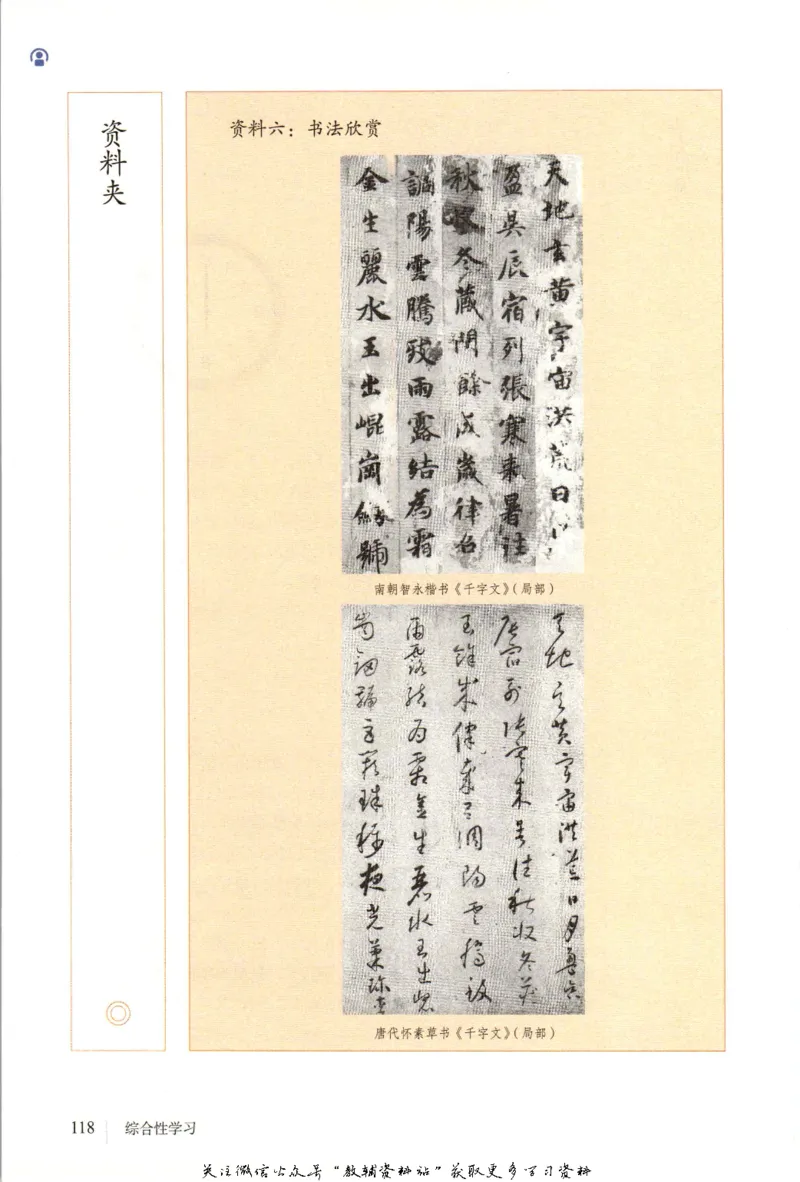 资料夹
资料六：书法欣赏
天地玄黄宇宙洪荒日
盈昃辰宿列張寒来暑往
秋收冬藏閏餘成歲律召
調陽雲騰致雨露結為霜
金生麗水玉出崐崗劍號
南朝智永楷书《千字文》（局部）
天地玄黄宇宙洪荒日月盈昃
辰宿列张寒来暑往秋收冬藏
成律吕调阳云腾致
雨露结为霜金生丽水玉出崐
岗剑号巨阙珠称夜光菓珍李
唐代怀素草书《千字文》（局部）
118 综合性学习
关注微信公众号“教辅资料站”获取更多学习资料